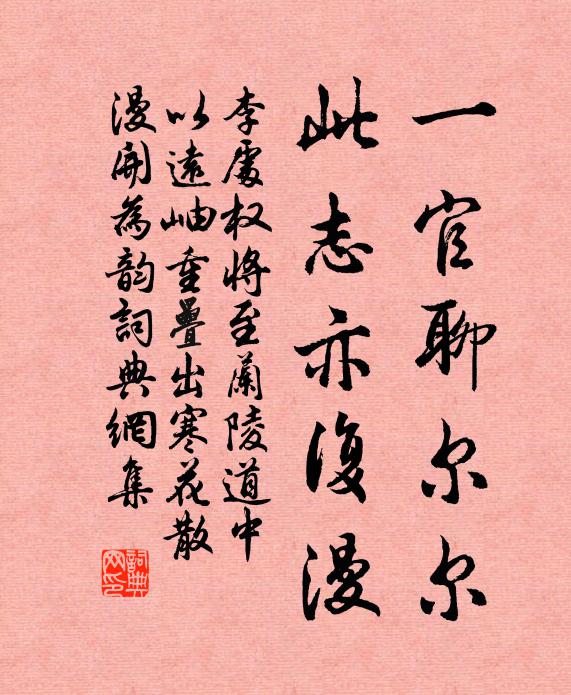 一官聊尔尔
此志亦復漫
李處权將至蘭陵道中
以遠岫重疊出寒花散
漫開為韵詞典網集
詞典網印